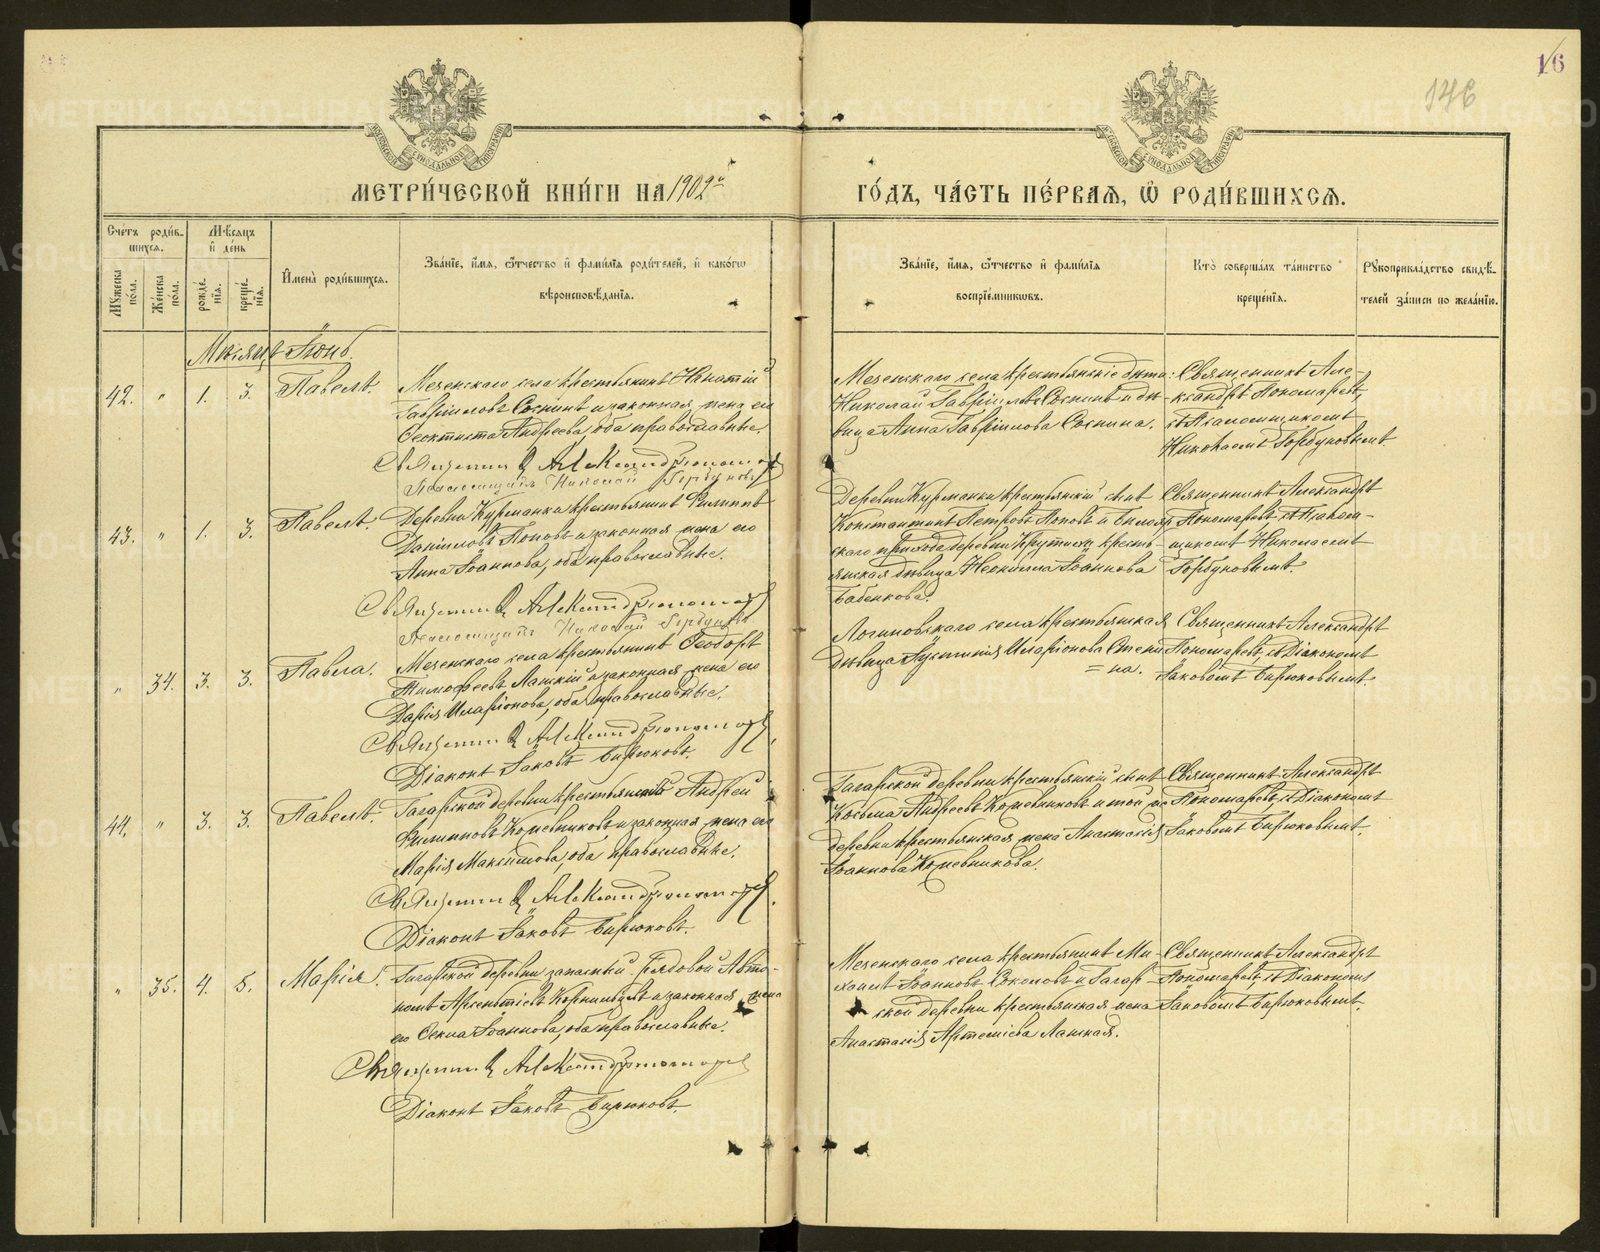 16
146
МЕТРИ́ЧЕСКОЙ КНИ́ГИ НА 1902й
ГО́ДЪ, ЧА́СТЬ ПЕ́РВАЯ, Ѡ҆ РОДИ́ВШИХСЯ.
Сче́тъ роди́в-
шихся.
Му́жеска пола.
Же́нска пола.
Мѣ́сяцъ
и҆ де́нь
рожде́-
нія.
креще́-
нія.
И҆мена̀ роди́вшихся.
Зва́ніе, и҆́мя, ѻ҆́тчество и҆ фами́лія роди́телей, и҆ како́гѡ
вѣроисповѣ́данія.
Зва́ніе, и҆́мя, ѻ҆́тчество и҆ фами́лія
воспріе́мникѡвъ.
Кто̀ соверша́лъ та́инство
креще́нія.
Рꙋкоприкла́дство свидѣ́-
телей за́писи по жела́нію.
Мѣсяцъ Іюнь.
42. " 1. 3. Павелъ.
Мезенскаго села крестьянинъ Игнатій
Гавріиловъ Соснинъ и законная жена его
Феоктиста Андреева, оба православные.
Священникъ Александръ Пономаревъ
Псаломщикъ Николай Горбуновъ
Мезенскаго села крестьянскіе дѣти:
Николай Гавріиловъ Соснинъ и дѣ-
вица Анна Гавріилова Соснина.
Священникъ Але-
ксандръ Пономаревъ
съ Псаломщикомъ
Николаемъ Горбуновымъ
43. " 1. 3. Павелъ.
Деревни Курманки крестьянинъ Филиппъ
Даніиловъ Поповъ и законная жена его
Анна Іоаннова, оба православные.
Священникъ Александръ Пономаревъ
Псаломщикъ Николай Горбуновъ
Деревни Курманки крестьянскій сынъ
Константинъ Петровъ Поповъ и Белояр-
скаго прихода деревни крестья-
янская дѣвица Неонилла Іоаннова
Бабенкова.
Священникъ Александръ
Пономаревъ съ Псалом-
щикомъ Николаемъ
Горбуновымъ.
" 34. 3. 3. Павла.
Мезенскаго села крестьянинъ Феодоръ
Тимофеевъ Лапкій и законная жена его
Дарія Иларіонова, оба православные.
Священникъ Александръ Пономаревъ
Діаконъ Іаковъ Бирюковъ.
Логиновскаго села крестьянская
дѣвица Иларіонова Степи-
=на.
Священникъ Александръ
Пономаревъ съ Діакономъ
Іаковомъ Бирюковымъ.
44. " 3. 3. Павелъ.
Гагарской деревни крестьянинъ Андрей
Филипповъ Кожевниковъ и законная жена его
Марія Максимова, оба православные.
Священникъ Александръ Пономаревъ
Діаконъ Іаковъ Бирюковъ.
Гагарской деревни крестьянскій сынъ
Косьма Андреевъ Кожевниковъ и той же
деревни крестьянская жена Анастасія
Іоаннова Кожевникова.
Священникъ Александръ
Пономаревъ съ Діакономъ
Іаковомъ Бирюковымъ.
" 35. 4. 5. Марія.
Гагарской деревни запасный рядовой Авто-
номъ Арсентіевъ и законная жена
его Фекла Іоаннова, оба православные.
Священникъ Александръ Пономаревъ
Діаконъ Іаковъ Бирюковъ.
Мезенскаго села крестьянинъ Ми-
хаилъ Іоанновъ Соколовъ и Гагар-
ской деревни крестьянская жена
Анастасія Артеміева Лапкая.
Священникъ Александръ
Пономаревъ съ Діакономъ
Іаковомъ Бирюковымъ.
METRIKI.GASO-URAL.RU